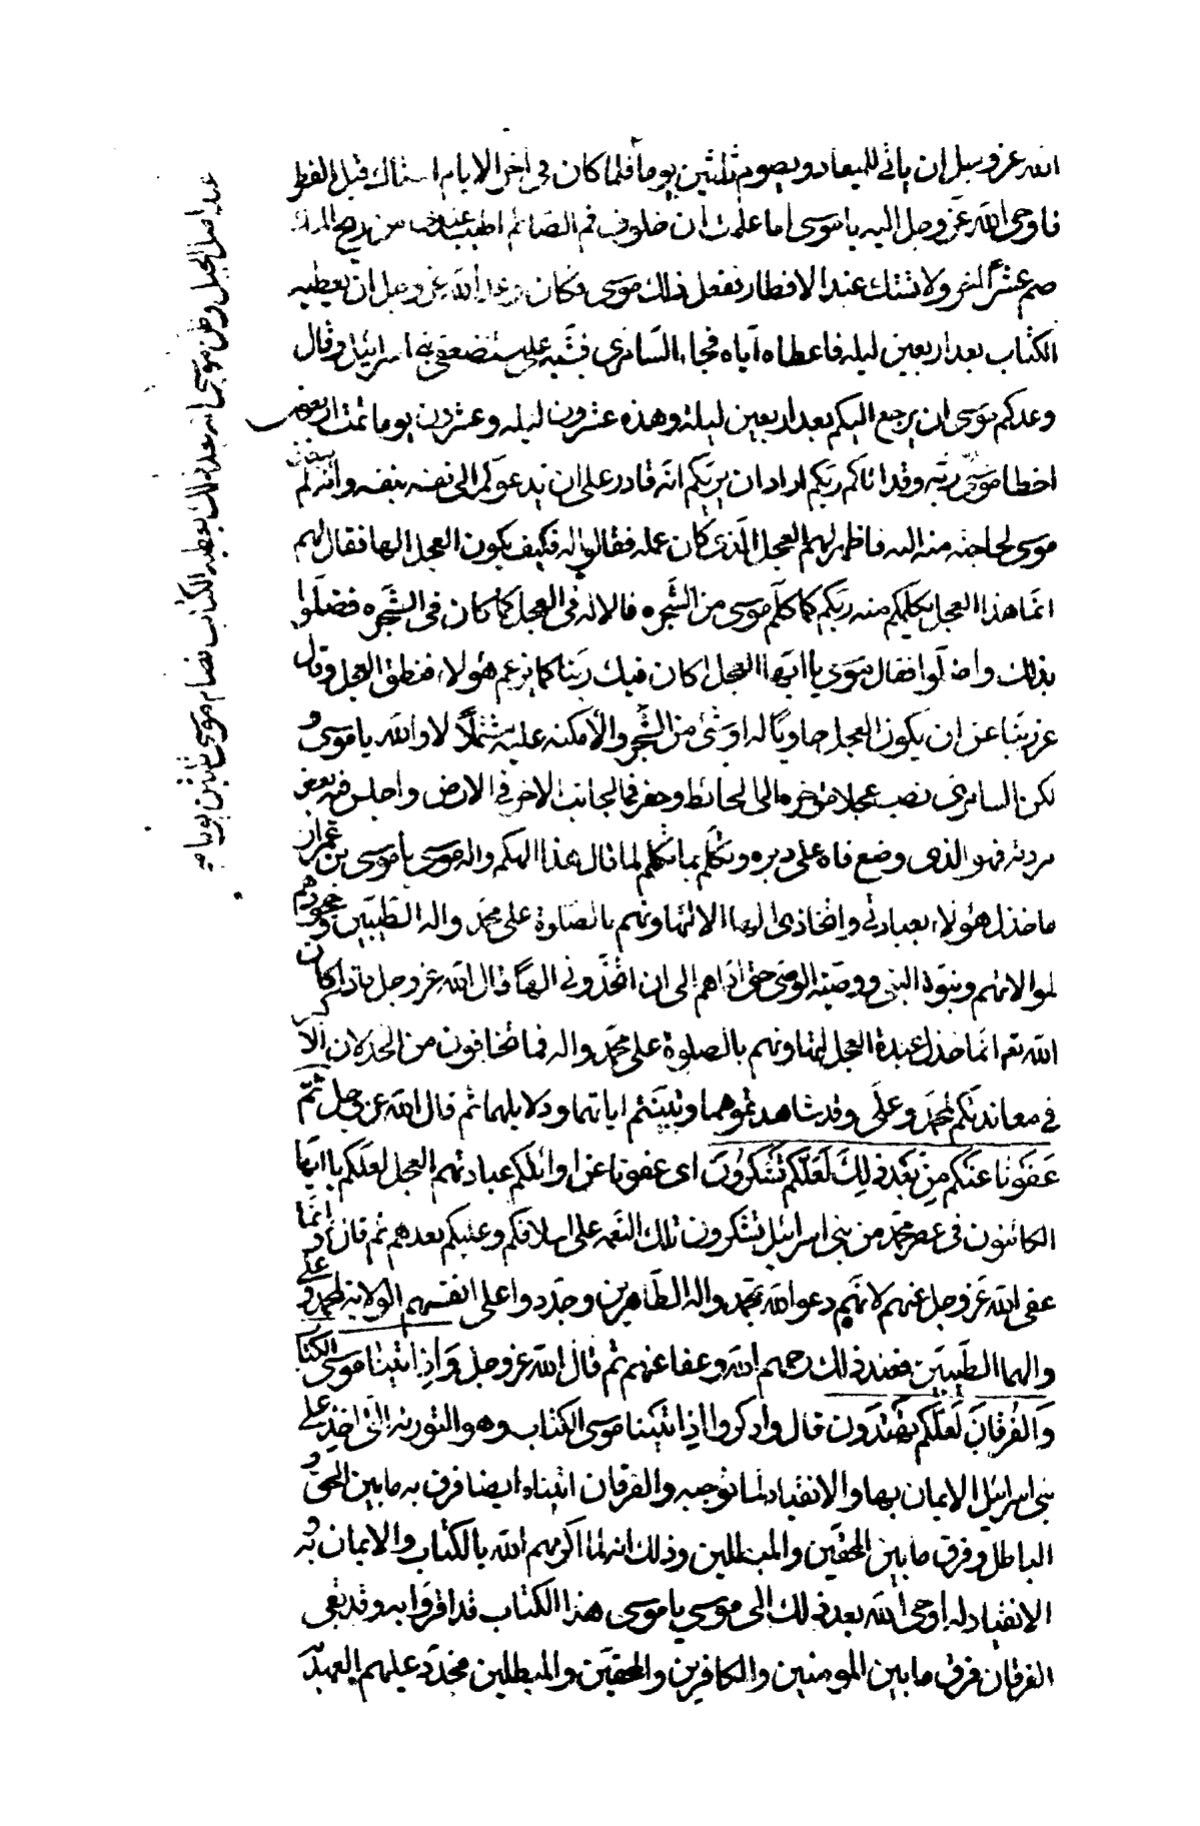 الله عز وجل ان ياتي للميعاد ويصوم ثلثين يوما فلما كان في اخر الايام استاك قبل الفطر
فاوحى الله عز وجل اليه يا موسى اما علمت ان خلوف فم الصائم اطيب عندي من ريح المسك
صم عشرا اخر ولا تستك عند الافطار ففعل ذلك موسى فكان وعد الله عز وجل ان يعطيه
الكتاب بعد اربعين ليله فاعطاه اياه فجاء السامري فشبه على مستضعفي بني اسرائيل وقال
وعدكم موسى ان يرجع اليكم بعد اربعين ليلة وهذه عشرون ليله وعشرون يوما تمت اربعون
اخطا موسى ربه وقد اتاكم ربكم اراد ان يريكم انه قادر على ان يدعوكم الى نفسه بنفسه وانه لم يبعث
موسى لحاجته منه اليه فاظهر لهم العجل الذى كان عمله فقالوا له فكيف يكون العجل الها فقال لهم
انما هذا العجل يكلمكم منه ربكم كما كلم موسى من الشجره فالاله في العجل كما كان في الشجره فضلوا
بذلك واضلوا فقال موسى يا ايها العجل اكان فيك ربنا كما يزعم هؤلاء فنطق العجل وقال
عز ربنا عن ان يكون العجل حاويا له او شئ من الشجر والامكنه عليه مشتملا لا والله يا موسى و
لكن السامرى نصب عجلا مؤخره الى الحائط وحفر في الجانب الاخر في الارض واجلس فيه بعض
مردته فهو الذى وضع فاه على دبره وتكلم بما تكلم لما قال هذا الهكم واله موسى يا موسى بن عمران
ما خذل هؤلاء بعبادتي واتخاذى الها الا لتهاونهم بالصلوة على محمد واله الطيبين وجحودهم
لموالاتهم ونبوة النبى ووصية الوصى حتى اداهم الى ان اتخذوني الها قال الله عز وجل فاذا كان
الله تعم انما خذل عبدة العجل لتهاونهم بالصلوة على محمد واله فما تخافون من الخذلان الاكبر
في معاندتكم لمحمد وعلى وقد شاهدتموهما وتبينتم اياتهما ودلايلهما ثم قال الله عز وجل ثم
عَفَوْنَا عَنْكُم مِنْ بَعْدِ ذلِكَ لَعَلَّكُم تَشْكُرُونَ اى عفونا عن اوائلكم عبادتهم العجل لعلكم يا ايها
الكائنون في عصر محمد من بني اسرائيل تشكرون تلك النعمه على اسلافكم وعليكم بعدهم ثم قال وانما
عفى الله عز وجل عنهم لانهم دعوا الله بمحمد واله الطاهرين وجددوا على انفسهم الولاية لمحمد وعلى
والهما الطيبين فعند ذلك رحمهم الله وعفا عنهم ثم قال الله عز وجل وَاِذ اتَيْنَا مُوسَى الكتاب
وَالفُرقَانَ لَعَلَّكُم تَهْتَدُون قال واذكروا اذ اتينا موسى الكتاب وهو التورية التي اخذ على
بني اسرائيل الايمان بها والانقياد لما توجبه والفرقان اتيناه ايضا فرق به ما بين الحق و
الباطل وفرق ما بين المحقين والمبطلين وذلك انه لما اكرمهم الله بالكتاب والايمان به و
الانقياد له اوحى الله بعد ذلك الى موسى يا موسى هذا الكتاب قد اقروا به وقد بقى
الفرقان فرق ما بين المومنين والكافرين والمحقين والمبطلين فجدد عليهم العهد به
عند اصل الجبل وظن موسى انه بعد ذلك يعطيه الكتاب فصام موسى ثلثين يوما